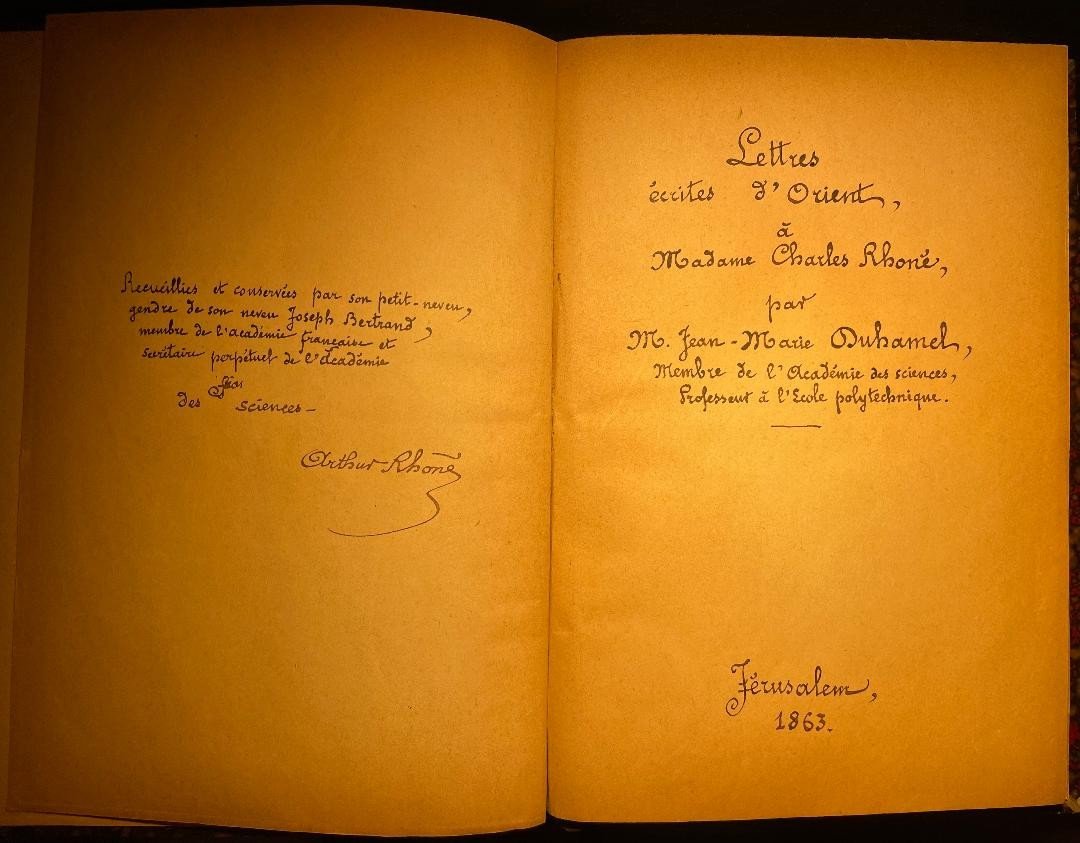 Recueillies et conservées par son petit-neveu,
gendre de son neveu Joseph Bertrand,
membre de l'académie française et
secrétaire perpétuel de l'Académie
des sciences —
Arthur Rhoné
Lettres
écrites d'Orient,
à
Madame Charles Rhoné,
par
M. Jean-Marie Duhamel,
Membre de l'Académie des sciences,
Professeur à l'Ecole polytechnique.
Jérusalem,
1863.